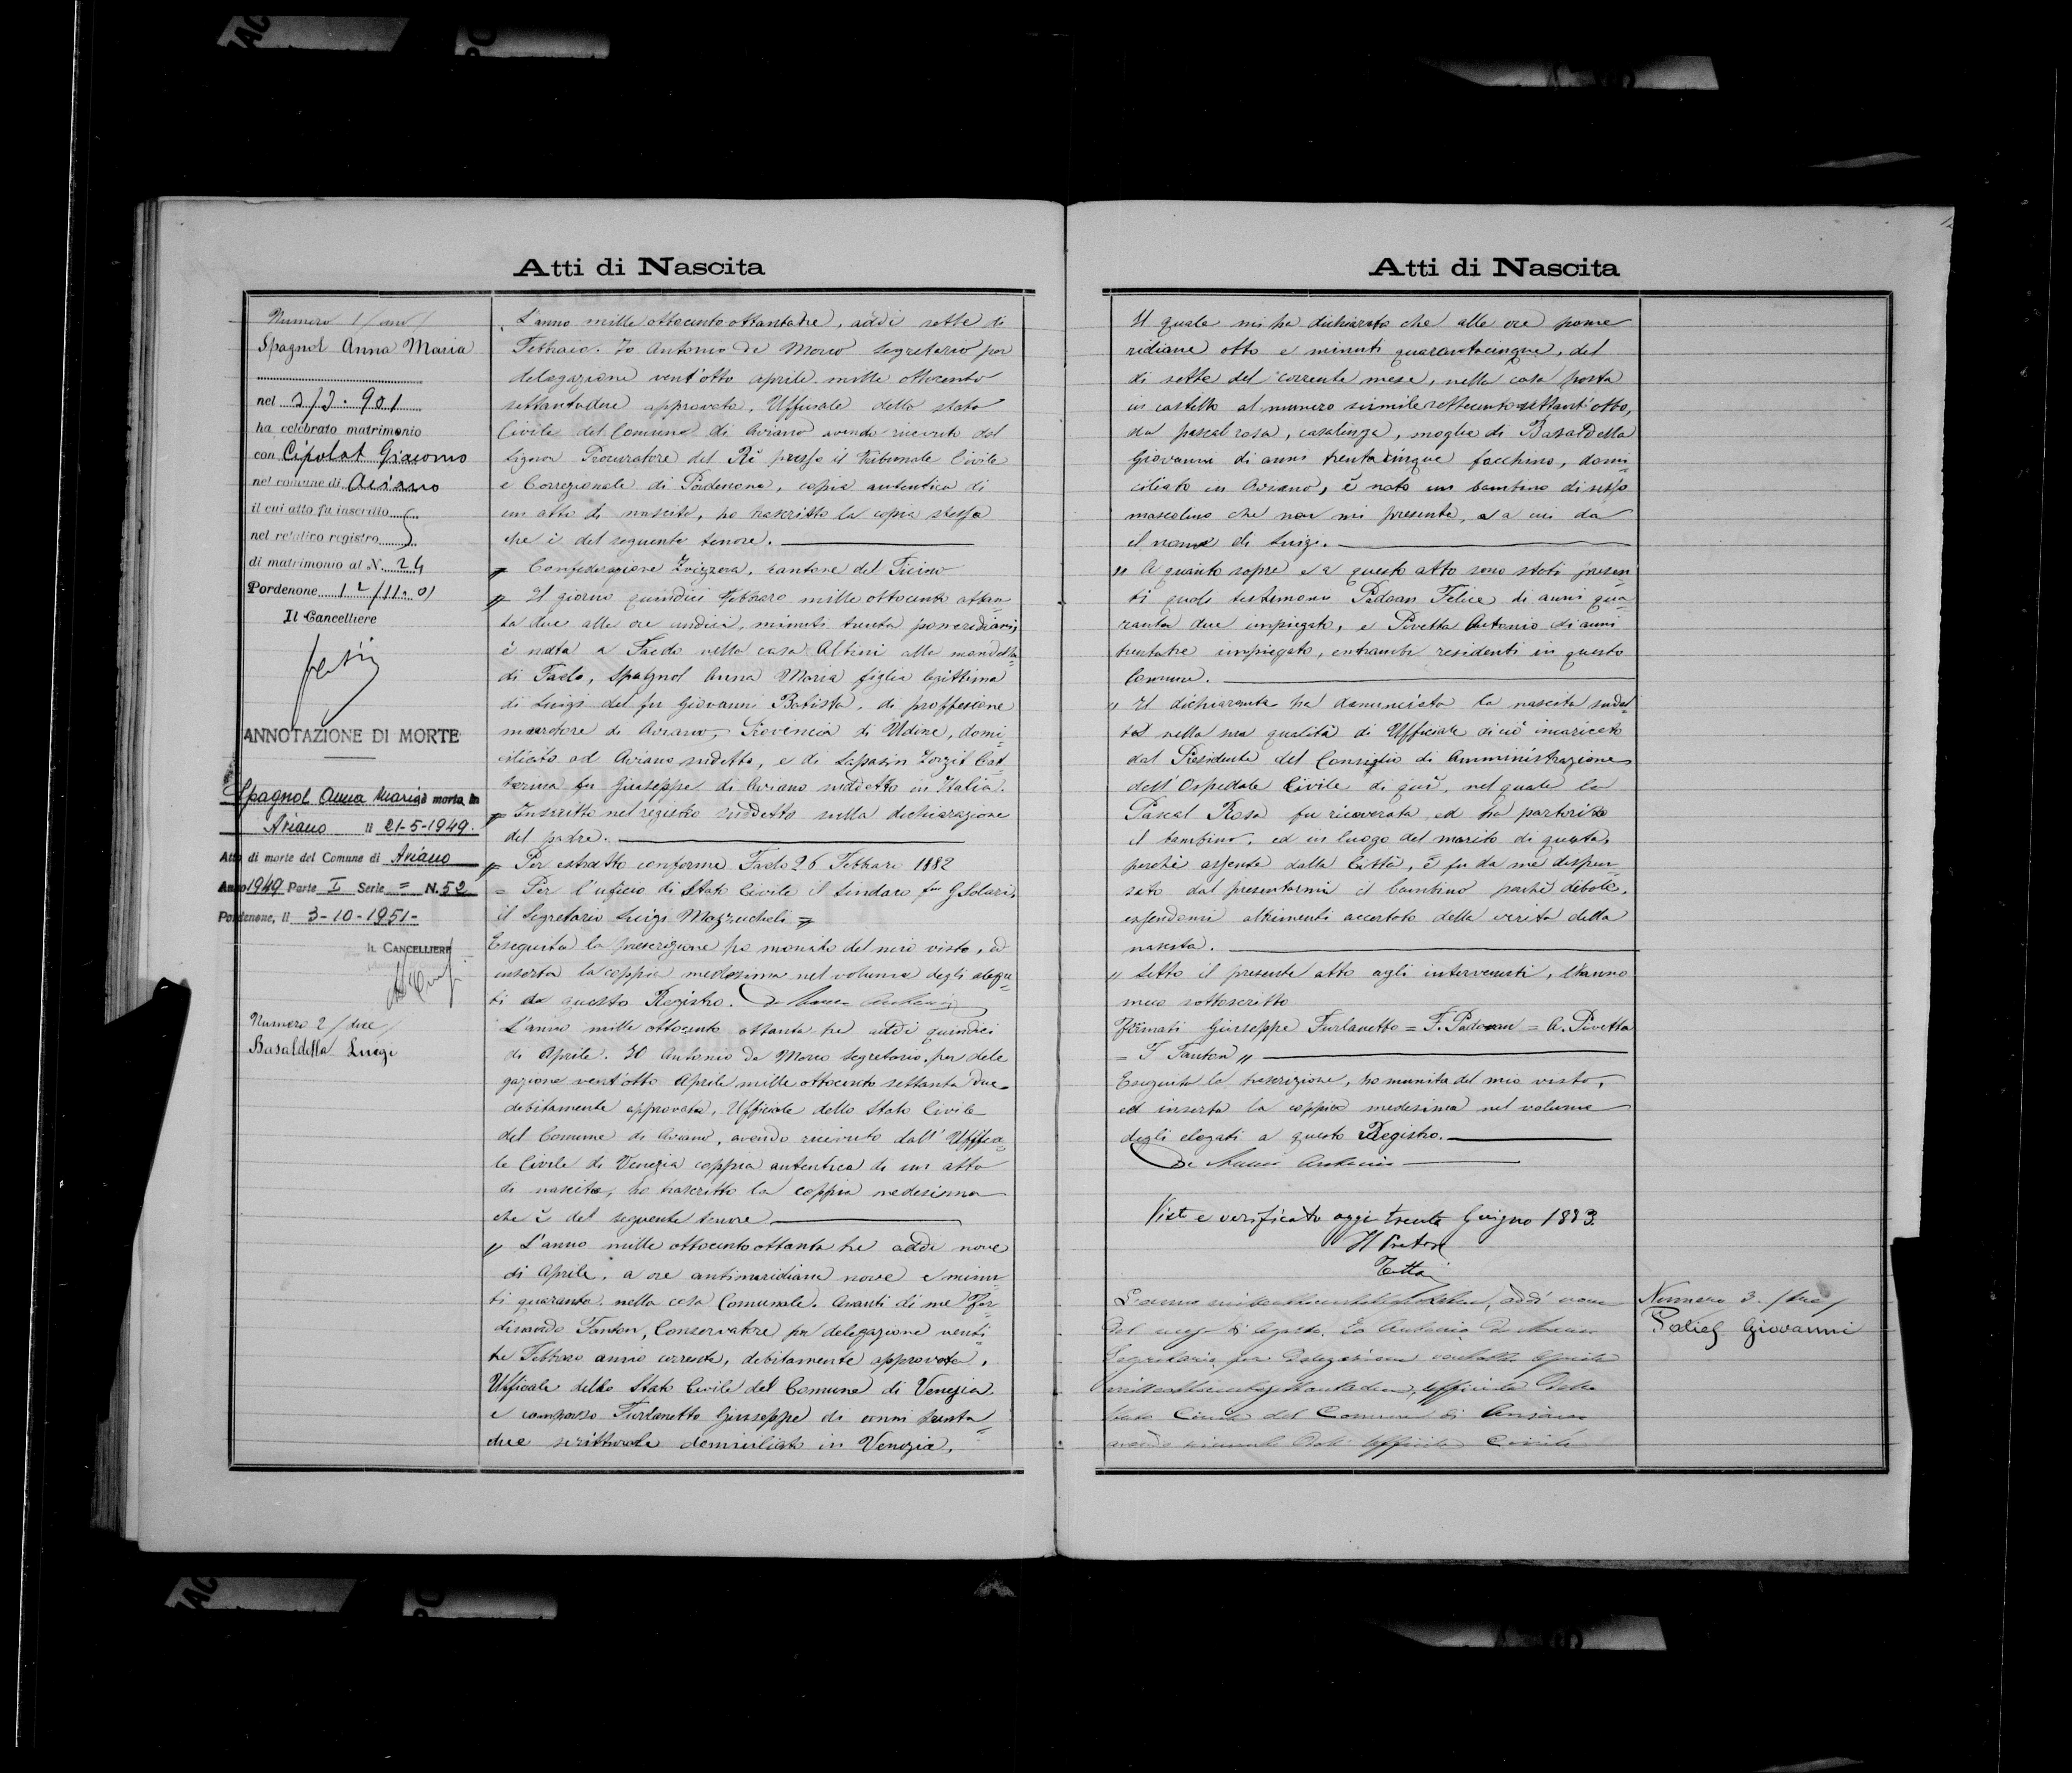 Atti di Nascita
Numero 1/uno/
Spagnol Anna Maria
nel 2/3.901
ha celebrato matrimonio
con Cipolat Giacomo
nel comune di Aviano
il cui atto fu inscritto
nel relativo registro
di matrimonio al N. 24
Pordenone 12/11.01
Il Cancelliere
ANNOTAZIONE DI MORTE
Spagnol Anna Maria è morta in
Aviano il 21-5-1949.
Atto di morte del Comune di Aviano
Anno 1949 Parte I Serie = N. 52
Pordenone, li 3-10-1951-
IL CANCELLIERE
Numero 2/due/
Basaldella Luigi
L'anno mille ottocento ottantatre, addi sette di
Febbraio. Io Antonio De Marco Segretario per
delegazione vent'otto aprile mille ottocento
settantadue approvata, Uffiziale dello stato
Civile del Comune di Aviano avendo ricevuto dal
Signor Procuratore del Rè presso il Tribunale Civile
e Correzionale di Pordenone, copia autentica di
un atto di nascita, ho trascritto la copia stessa
che è del seguente tenore.
„ Confederazione Svizzera, cantone del Ticino
„ Il giorno quindici Febbraro mille ottocento ottan=
ta due alle ore undici, minuti trenta pomeridiani,
è nata a Faido nella casa Altini alla mondella
di Faido, Spagnol Anna Maria figlia legittima
di Luigi del fu Giovanni Batista, di proffessione
muratore di Aviano, Provincia di Udine, domi=
ciliato ad Aviano sudetto, e di Lapasin Zorzit Cat=
terina fu Giuseppe di Aviano suddetto in Italia.
„ Inscritto nel registro suddetto sulla dichiarazione
del padre.
„ Per estratto conforme Faido 26 Febbraro 1882
= Per l'ufficio di Stato Civile il Sindaco G Solari,
il Segretario Luigi Mazzucheli „
Eseguita la prescrizione ho monito del mio visto, ed
inserta la coppia medesima nel volume degli alega=
ti di questo Registro. De Marco Antonio
L'anno mille ottocento ottanta tre addi quindici
di Aprile. Io Antonio De Marco Segretario, per dele
gazione vent'otto Aprile mille ottocento settanta due
debitamente approvata, Ufficiale dello Stato Civile
del Comune di Aviano, avendo ricevuto dall' Uffica=
le Civile di Venezia coppia autentica di un atto
di nascita, ho trascritto la coppia medesima
che è del seguente tenore
„ L'anno mille ottocento ottanta tre addi nove
di Aprile, a ore antimeridiane nove e minu=
ti quaranta, nella casa Comunale. Avanti di me Fer
dinando Fanton, Conservatore per delegazione venti=
tre Febbraro anno corrente, debitamente approvata,
Ufficale dello Stato Civile del Comune di Venezia.
è comparso Furlanetto Giuseppe di anni trenta=
due scritturale domiciliato in Venezia,
Atti di Nascita
Il quale mi ha dichiarato che alle ore pome
ridiane otto e minuti quarantacinque, del
di sette del corrente mese, nella casa posta
in castello al numero seimilesettecento settant'otto,
da pascal rosa, casalinga, moglie di Basaldella
Giovanni di anni trenta cinque facchino, domi=
ciliato in Aviano, è nato un bambino di sesso
mascolino che non mi presenta, e a cui da
il nome di Luigi.
„ A quanto sopra e a questo atto sono stati presen=
ti quali testemoni Padoan Felice di anni qua=
ranta due impiegato, e Pivetta Antonio di anni
trentatre impiegato, entrambi residenti in questo
Comune.
„ Il dichiarante ha denunciata la nascita sudet=
ta nella sua qualità di Ufficiale di ciò incaricato
dal Presidente del Consiglio di Amministrazione
dell' Ospedale Civile di quì, nel quale la
Pascal Rosa fu ricoverata ed ha partorito
il bambino, ed in luogo del marito di questa,
perchè assente dalla Città, e fu da me dispen=
sato dal presentarmi il bambino perchè debole,
essendomi altrimenti accertato della verità della
nascita.
„ Letto il presente atto agli intervenuti, l'hanno
meco sottoscritto
firmati Giuseppe Furlanetto = F. Padoan = A. Pivetta
= F Fanton „
Eseguita la trascrizione, ho munita del mio visto,
ed inserta la coppia medesima nel volume
degli elegati a questo Registro.
De Marco Antonio
Visto e verificato oggi trenta Giugno 1883.
Il Pretore
L'anno milleottocentottantatre, addi nove
del mese di Agosto. Io Antonio De Marco
Segretario per delegazione ventotto Aprile
milleottocentosettantadue, Ufficiale dello
Stato Civile del Comune di Aviano
avendo ricevuto dall' Ufficiale Civile
Numero 3. /tre/
Giovanni